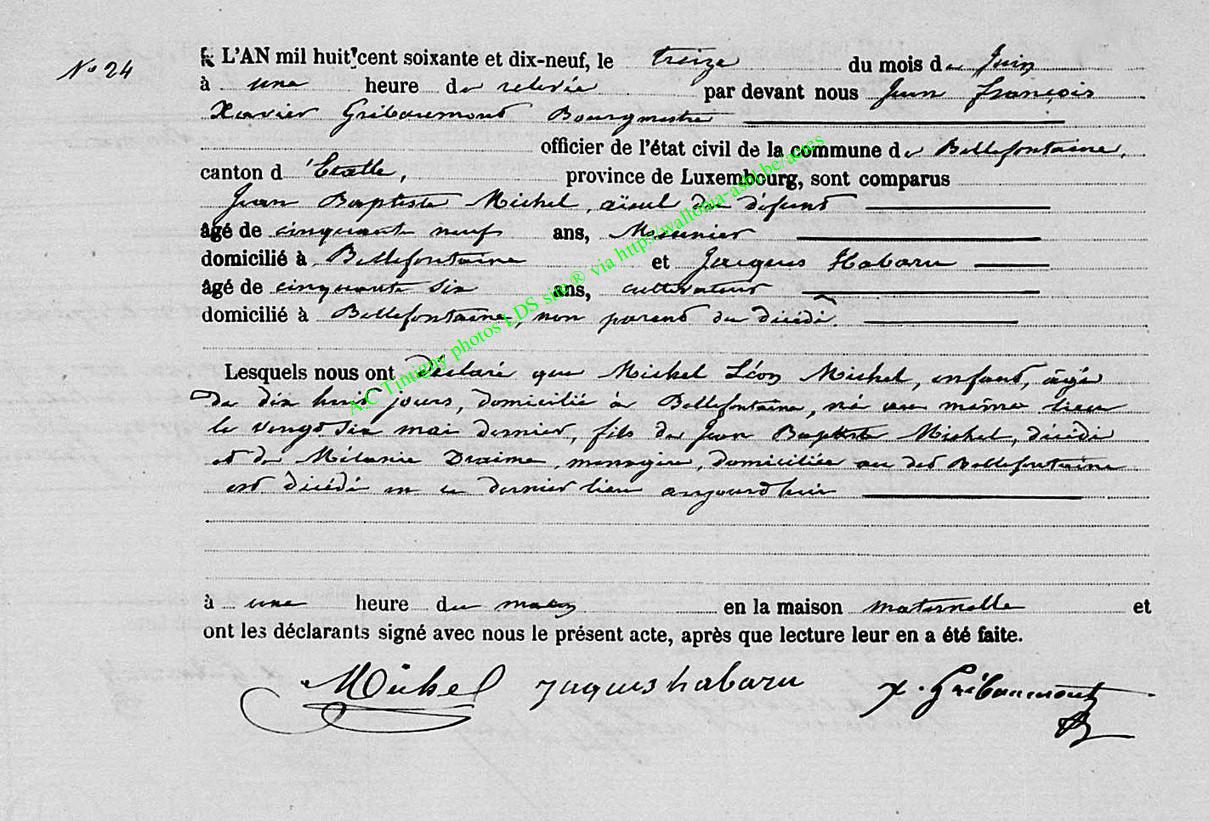 No 24
L'AN mil huit cent soixante et dix-neuf, le treize du mois de Juin
à une heure de relevée par devant nous Jean François
Xavier Gribaumont Bourgmestre
officier de l'état civil de la commune de Bellefontaine,
canton d'Etalle, province de Luxembourg, sont comparus
Jean Baptiste Michel, aïeul du défunt
âgé de cinquante neuf ans, Meunier
domicilié à Bellefontaine et Jacques Habaru
âgé de cinquante six ans, cultivateur
domicilié à Bellefontaine, non parent du décédé.
Lesquels nous ont déclaré que Michel Léon Michel, enfant, âgé
de dix huit jours, domicilié à Bellefontaine, né au même lieu
le vingt six mai dernier, fils de Jean Baptiste Michel, décédé
et de Mélanie Draime, ménagère, domiciliée au dit Bellefontaine
est décédé en ce dernier lieu aujourd'hui
à une heure du matin en la maison maternelle et
ont les déclarants signé avec nous le présent acte, après que lecture leur en a été faite.
Michel Jaques habaru x. Gribaumont
A.C Tintigny photos LDS site® via https://wallonia-asbl.be/actes